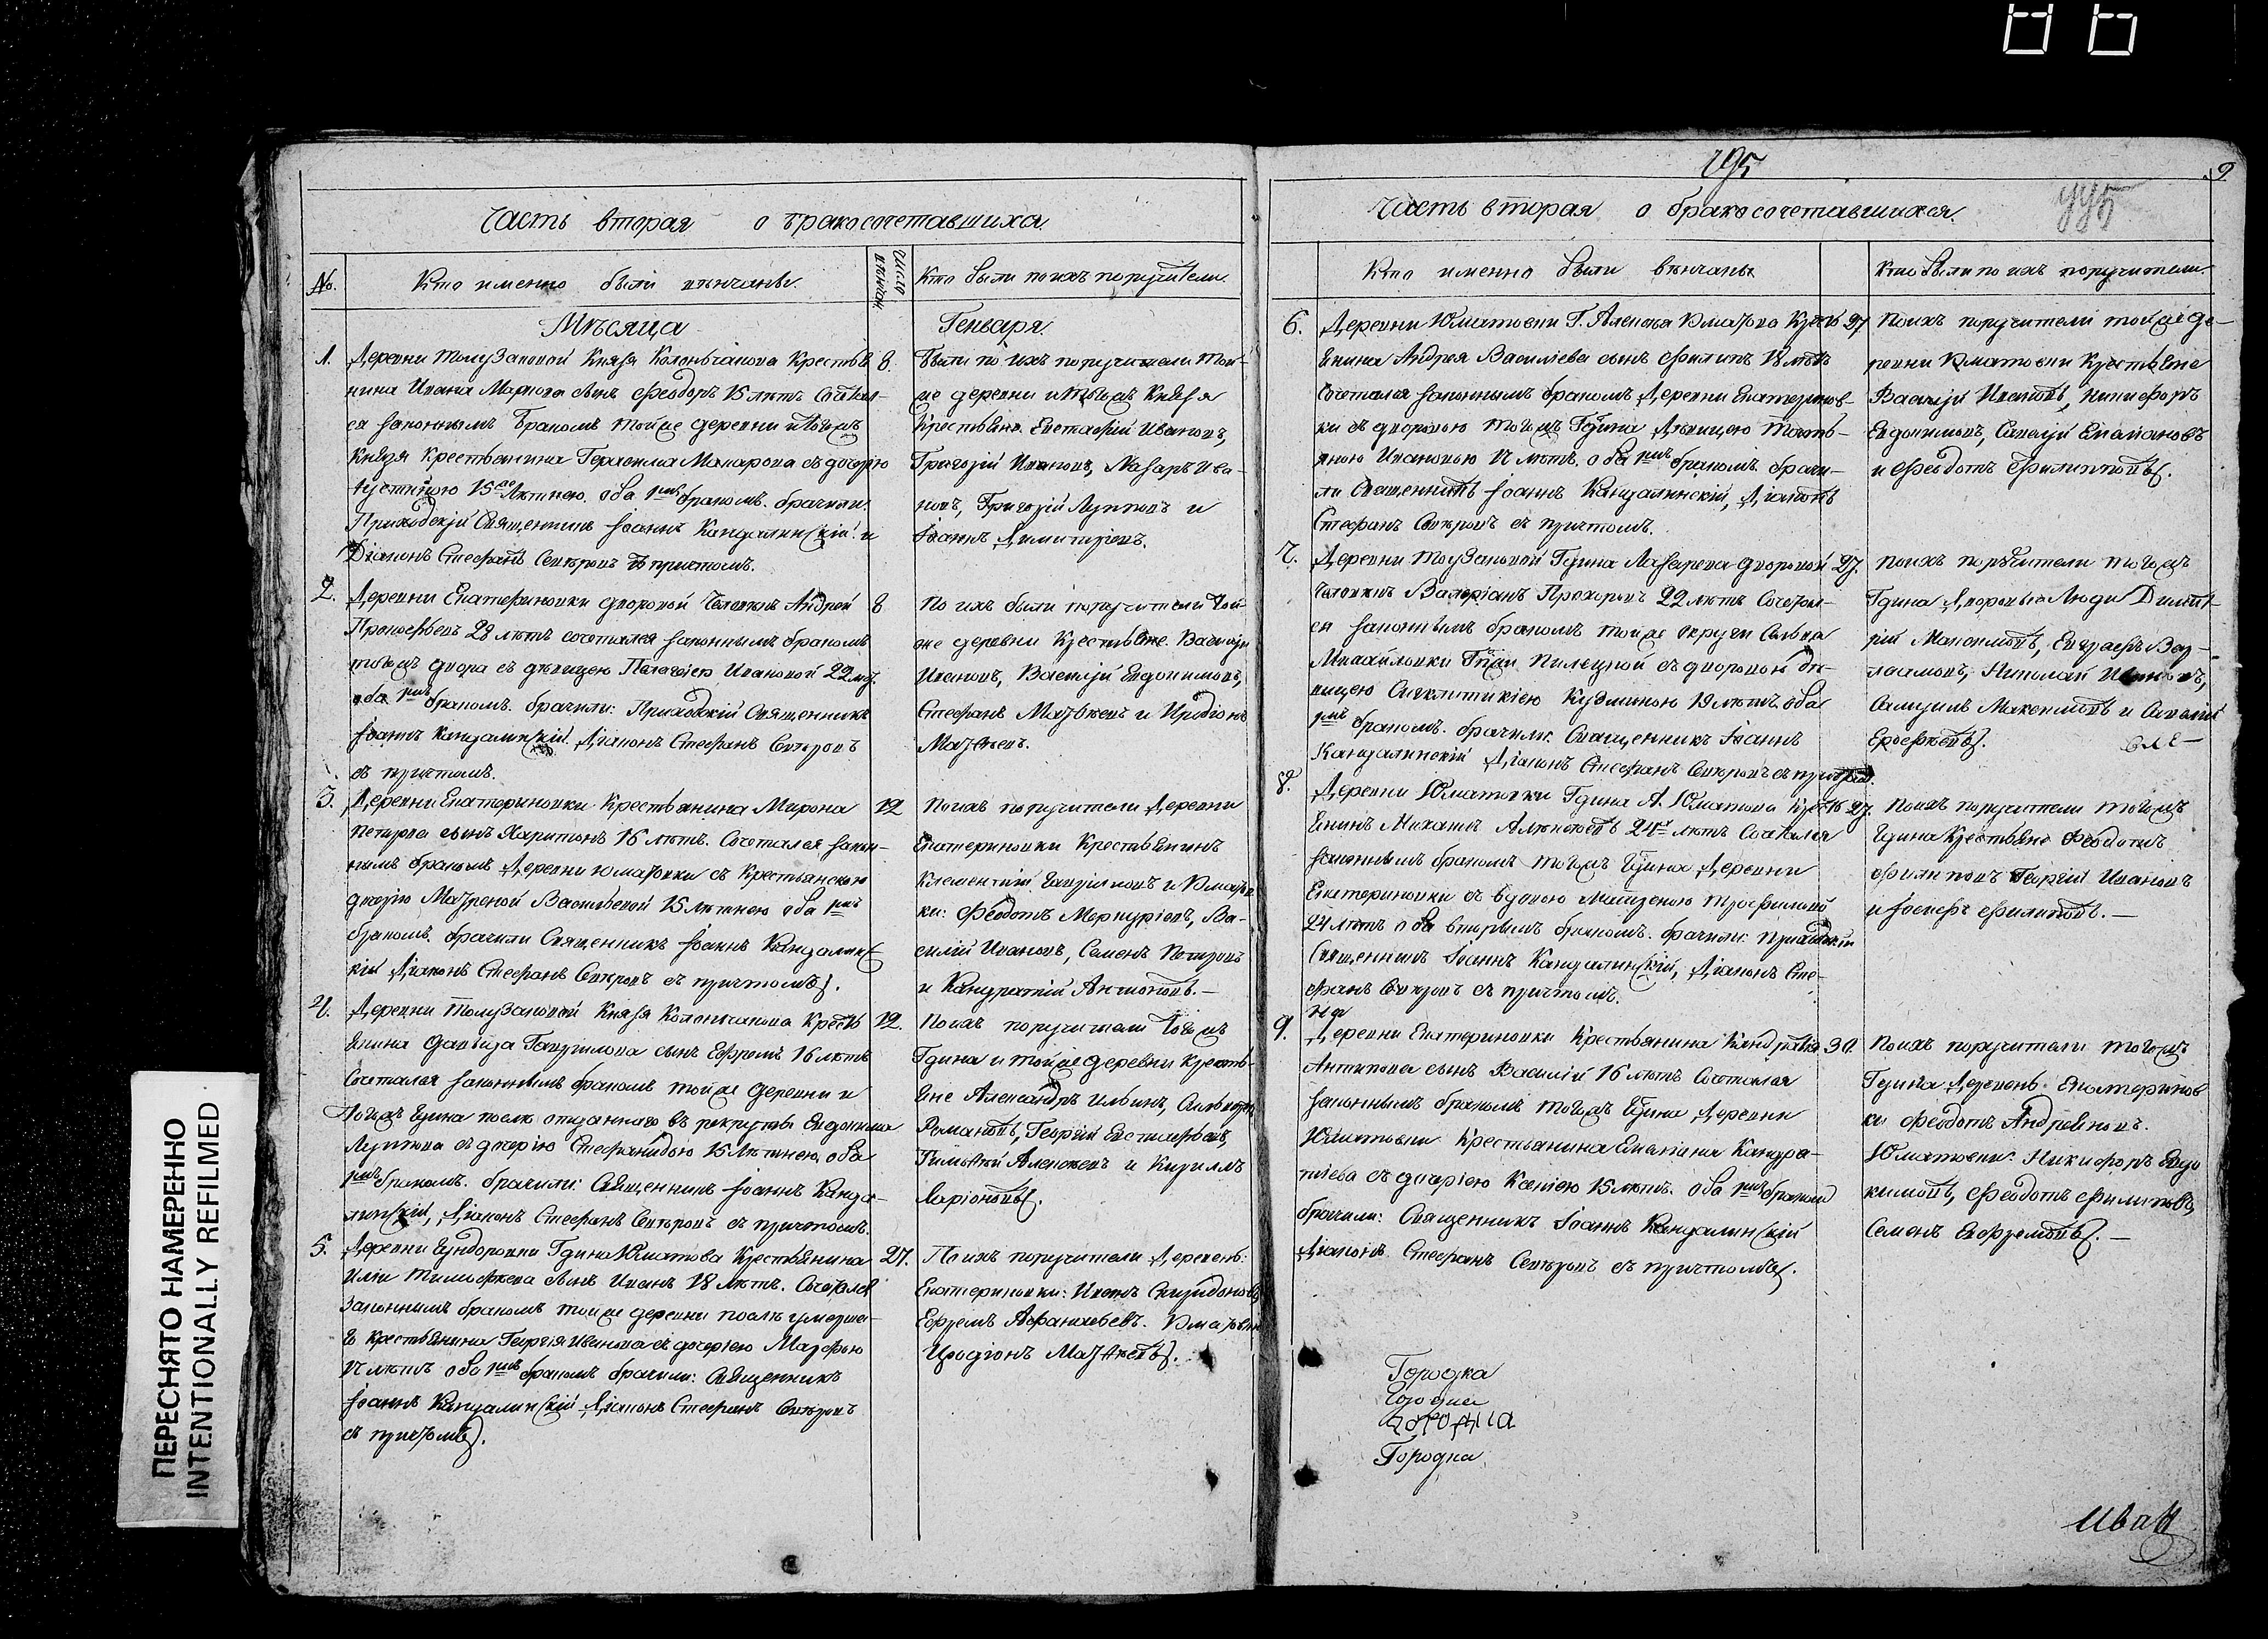 Часть вторая о бракосочетавшихся.
№.
Кто именно были венчаны.
Число
Кто были по ихъ поручители.
Мѣсяца
Генваря.
1. Деревни Князя Колончакова Крестья
нина Ивана Маркова сынъ Феодоръ 15 лѣтъ Сочетал-
ся законнымъ бракомъ тойже деревни и тогожъ
Князя Крестьянина Герасима Макарова съ дочерію
15 Лѣтнею. оба 1мъ бракомъ. брачили:
Приходскій Священникъ Іоаннъ Кандалинскій и
Діаконъ Стефанъ съ причтомъ.
8.
Были по ихъ поручители той-
же деревни и тогожъ Князя
Крестьяне. Евстафій Ивановъ,
Григорій Ивановъ, Назаръ Ива-
новъ, Григорій Лупповъ и
Іоаннъ Димитріевъ.
2. Деревни Екатериновки дворовой Человѣкъ Андрей
Прокофьевъ 28 лѣтъ сочетался законнымъ бракомъ
тогожъ двора съ дѣвицею Пелагіею Ивановой 22 лѣт.
оба 1мъ бракомъ. брачили: Приходскій Священникъ
Іоаннъ Кандалинскій Діаконъ Стефанъ
съ причтомъ.
8
По ихъ были поручители той-
же деревни Крестьяне. Василій
Ивановъ, Василій Евдокимовъ,
Стефанъ Матвѣевъ и Иродіонъ
Матвѣевъ.
3. Деревни Екатериновки Крестьянина Мирона
Петрова сынъ Харитонъ 16 лѣтъ. Сочетался закон-
нымъ бракомъ Деревни Юматовки съ Крестьянскою
дочерію Матреной Васильевой 15 лѣтнею оба 1мъ
бракомъ. брачили Священникъ Іоаннъ Кандалинс
кій Діаконъ Стефанъ съ причтомъ.
12
По ихъ поручители Деревни
Екатериновки Крестьянинъ
Климентій Гавриловъ и Юматов
ки: Феодотъ Меркуріевъ, Ва-
силій Ивановъ, Семенъ Петровъ
и Кандратій Антиповъ.—
4. Деревни Князя Колончакова Кресть
янина Давида Гаврилова сынъ Ефремъ 16 лѣтъ
Сочетался законнымъ бракомъ тойже деревни и
тогожъ Гдина послѣ отданного въ рекруты Евдокима
Луппова съ дочерію Стефанидою 15 Лѣтнею. оба
1мъ бракомъ. брачили: Священникъ Іоаннъ Канда-
линскій, Діаконъ Стефанъ съ причтомъ.
12.
По ихъ поручители тогожъ
Гдина и тойже деревни Кресть-
яне Александръ Ильинъ,
Романовъ, Георгій Евстафьевъ,
Тимофей Алексѣевъ и Кирилъ
Ларіоновъ.
5. Деревни Гдина Юматова Крестьянина
Иліи Тимофѣева сынъ Иванъ 18 Лѣтъ. Сочетался
Законнымъ бракомъ тойже деревни послѣ умерша-
го крестьянина Георгія Иванова съ дочерію Марфою
17 лѣтъ оба 1мъ бракомъ брачили: Священникъ
Іоаннъ Кандалинскій Діаконъ Стефанъ
съ причтомъ.
27.
По ихъ поручители Деревень:
Екатериновки: Иванъ Спиридоновъ
Ефремъ Афанасьевъ.
Иродіонъ Матвѣевъ.
195
9
Часть вторая о бракосочетавшихся.
Кто именно были вѣнчаны
Кто были по ихъ поручители.
6. Деревни Юматовки Г. Алексѣя Юматова Кресть
янина Андрея Василіева сынъ Филипъ 18 лѣтъ
Сочетался законнымъ бракомъ Деревни Екатеринов-
ки съ дворовою тогожъ Гдина дѣвицею
Ивановою 17 лѣтъ. оба 1мъ бракомъ брачи-
ли Священникъ Іоаннъ Кандалинскій, Діаконъ
Стефанъ съ причтомъ.
27
По ихъ поручители тойже де-
ревни Юматовки Крестьяне
Василій Ивановъ, Никифоръ
Евдокимовъ, Савелій
и Феодотъ Филипповъ.
7. Деревни Гдина Лазарева дворовой
Человѣкъ Валеріанъ Прохоровъ 22 лѣтъ Сочетал-
ся законнымъ бракомъ тойже округи Сельца
Михайловки съ дворовой дѣ-
вицею Синклитикіею Кузминою 19 лѣтъ. оба
1мъ бракомъ. брачили. Священникъ Іоаннъ
Кандалинскій Діаконъ Стефанъ съ причтомъ.
27.
По ихъ поручители тогожъ
Гдина Дворовые Люди Димит-
рій Максимовъ, Евграфъ Вар-
лаамовъ, Николай Ивановъ,
Самуилъ Максимовъ и Савелій
Ерофѣевъ.
8. Деревни Юматовки Гдина А. Юматова Кресть
янинъ Михаилъ Алексѣевъ 24 лѣтъ Сочетался
законнымъ бракомъ тогожъ Гдина Деревни
Екатериновки съ вдовою
24 лѣтъ оба вторымъ бракомъ. брачили: Приходскій
Священникъ Іоаннъ Кандалинскій, Діаконъ Сте-
фанъ съ причтомъ.
27.
По ихъ поручители тогожъ
Гдина Крестьяне Феодотъ
Филиповъ Георгій Ивановъ
и Іосифъ Филиповъ.—
9. Деревни Екатериновки Крестьянина Кандратія
Антипова сынъ Василій 16 лѣтъ Сочетался
законнымъ бракомъ тогожъ Гдина Деревни
Юматовки Крестьянина Кандра-
тіева съ дочерію Ксеніею 15 лѣтъ. оба 1мъ бракомъ
брачили: Священникъ Іоаннъ Кандалинскій
Діаконъ Стефанъ съ причтомъ.
30.
По ихъ поручители тогожъ
Гдина Деревень Екатеринов
ки Феодотъ Андреяновъ.
Юматовки: Никифоръ Евдо
кимовъ, Феодотъ Филиповъ,
Семенъ Ефремовъ.—
Городка
Городка
Городка
Иван
ПЕРЕСНЯТО НАМЕРЕННО
INTENTIONALLY REFILMED